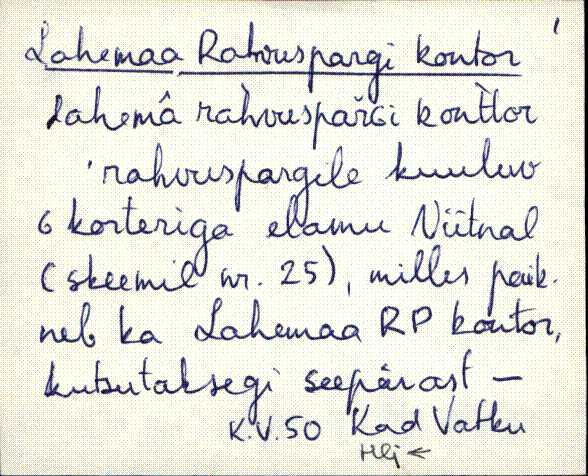 Lahemaa Rahvuspargi kontor
Lahemâ rahvuspargi konttor
rahvuspargile kuuluv
6 korteriga elamu Viitnal
(skeemil nr. 25), milles paik-
neb ka Lahemaa RP kontor,
kutsutaksegi seepärast —
K.V. 50 Kad Vatku
Hlj ←